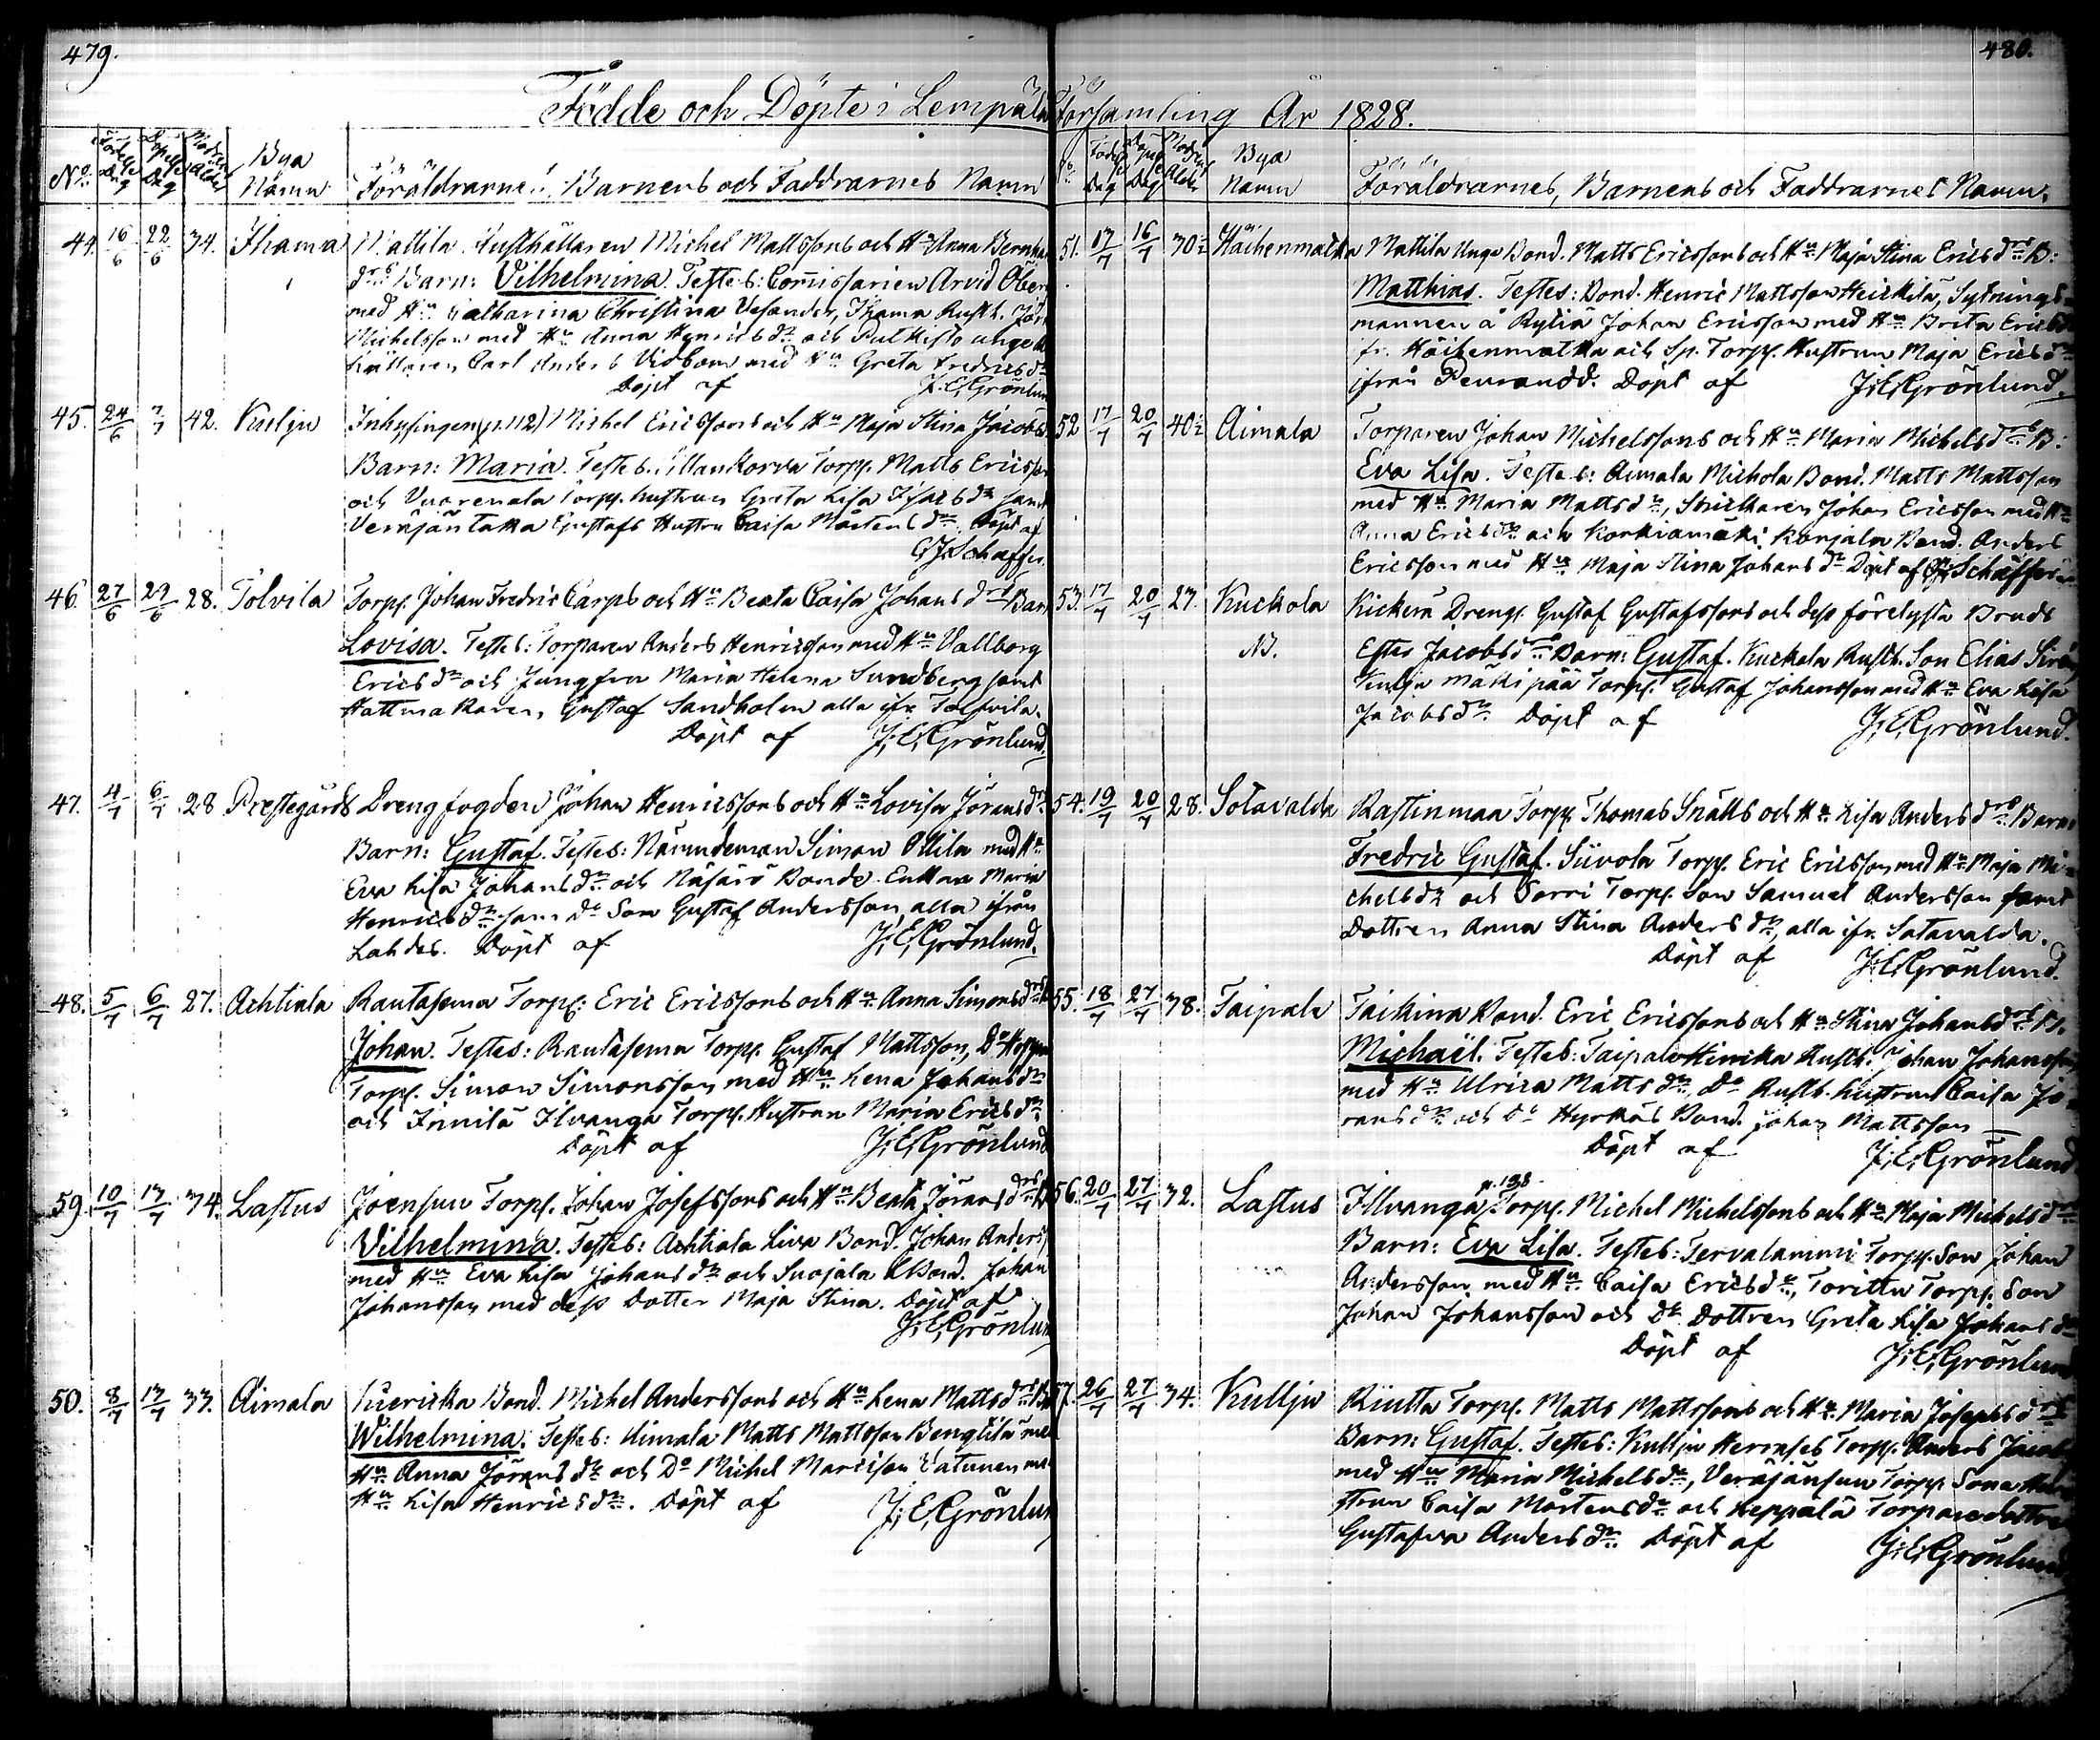 479.
Födde och Döpte i Lempälä
No Födelse Dag Döpelse Dag Modrens Ålder Bya Namn Föräldrarnes, Barnens och Faddrarnes Namn
44. 16/6 22/6 34. Ihama Mattila Rusthållaren Michel Mattssons och Hu Anna
drs Barn: Vilhelmina. Testes: Commissarien Arvid
med Hu Catharina Christina Vesander, Ihama Rusth.
Michelsson med Hu Anna Henricsdr och unge
Carl Anders Vidbom med Hu Greta Fredricsdr
Döpt af J. E. Grönlun
45. 24/6 7/7 42. Kuljn Inhysingen (p. 112) Michel Ericssons och Hu Maja Stina Jacobs
Barn: Maria. Testes: Torp. Matts Ericsson
och Vuorenala Torp. hustrun Greta Lisa samt
Gustafs Hustru Caisa Mårtensdr. Döpt af
46. 27/6 29/6 28. Tolvila Torp. Johan Fredric Carps och Hu Beata Caisa Johansdrs Barn
Lovisa. Testes: Torparen Anders Henricsson med Hu Vallborg
Ericsdr och Jungfru Maria Helena Sundberg samt
Hattmakaren Gustaf Sandholm alla ifr. Tolvila.
Döpt af J. E. Grönlund.
47. 4/7 6/7 28 Prestegårds Drengfogden Johan Henricssons och Hu Lovisa Jöransdr
Barn: Gustaf. Testes: Nämndeman Simon Ollila med Hu
Eva Lisa Johansdr och Näsärö Bonde Enkan Maria
Henricsdr samt Do Son Gustaf Andersson alla ifrån
Lahdes. Döpt af J. E. Grönlund.
48. 5/7 6/7 27. Achtiala Rautasema Torp. Eric Ericssons och Hu Anna Simonsdrs
Johan. Testes: Rautasema Torp. Gustaf Mattsson, Do
Torp. Simon Simonsson med Hu Lena Johansdr
och Innilä Ilvanga Torp. Hustrun Maria Ericsdr
Döpt af J. E. Grönlund
59. 10/7 13/7 34. Lastus Joensuu Torp. Johan Josefssons och Hu Beata Jöransdrs
Vilhelmina. Testes: Achtiala Liva Bond. Johan Anders
med Hu Eva Lisa Johansdr och Suojala Bond. Johan
Johansson med dess Dotter Maja Stina. Döpt af
J. E. Grönlun
50. 8/7 13/7 33. Aimala Bond. Michel Anderssons och Hu Lena Mattsdrs
Wilhelmina. Testes: Aimala Matts Mattsson Bengtilä me
Hu Anna Jöransdr och Do Michel
Hu Lisa Henricsdr. Döpt af J. E. Grönlun
480.
Församling År 1828.
No Födelse Dag Döpelse Dag Modrens Ålder Bya Namn Föräldrarnes, Barnens och Faddrarnes Namn.
51. 13/7 16/7 30½ Häihenmatka Mattila Unge Bond. Matts Ericssons och Hu Maja Stina Ericsdrs B:
Matthias. Testes: Bond. Henric Mattsson Heickilä, Sytnings
mannen å Rytiä Johan Ericsson med Hu Brita Ericsdr
fr. Häihenmatka och Torp. Hustrun Maja Ericsdr
ifrån Döpt af J. E. Grönlund.
52 17/7 20/7 40½ Aimala Torparen Johan Michelssons och Hu Maria Michelsdrs B:
Eva Lisa. Testes: Aimala Michola Bond. Matts Mattsson
med Hu Maria Mattsdr, Johan Ericsson med Hu
Anna Ericsdr och Korkiamäki Bond. Anders
Ericsson med Hu Maja Stina Johansdr Döpt af
53. 17/7 20/7 23. Kuckola Drengs. Gustaf Gustafssons och dess förelysta Bruds
NB. Ester Jacobsdrs Barn: Gustaf. Kuckola Rusth. Son Elias
mäki pää Torp. Gustaf Johansson med Hu Eva Lisa
Jacobsdr Döpt af J. E. Grönlund.
54. 19/7 20/7 28. Sotavalda Rastinmaa Torp. Thomas Snälls och Hu Lisa Andersdrs Barn
Fredric Gustaf. Siivola Torp. Eric Ericsson med Hu Maja Mi-
chelsdr och Sorri Torp. Son Samuel Andersson samt
Dottren Anna Stina Andersdr, alla ifr. Sotavalda.
Döpt af J. E. Grönlund.
55. 18/7 27/7 38. Taipale Taikina Bond. Eric Ericssons och Hu Stina Johansdrs B.
Michaël. Testes: Taipale Rusth. Johan Johansson
med Hu Ulrica Mattsdr, Do Rusth. hustrun Caisa Jö
ransdr och Do Hyrkäs Bond. Johan Mattsson
Döpt af J. E. Grönlund
56. 20/7 27/7 32. Lastus Ilvanga p. 138 Torp. Michel Michelssons och Hu Maja Michelsdrs
Barn: Eva Lisa. Testes: Tervalammi Torp. Son Johan
Andersson med Hu Caisa Ericsdr, Torittu Torp. Son
Johan Johansson och Do Dottren Greta Lisa Johansdr
Döpt af J. E. Grönlun
57. 26/7 27/7 34. Kulljn Torp. Matts Mattssons och Hu Maria Josephsdrs
Barn: Gustaf. Testes: Kulljn Torp. Anders Jacobs
med Hu Maria Michelsdr, Torp. Sona Hu
strun Caisa Mårtensdr och Leppälä Torparedottren
Gustafva Andersdr. Döpt af J. E. Grönlund